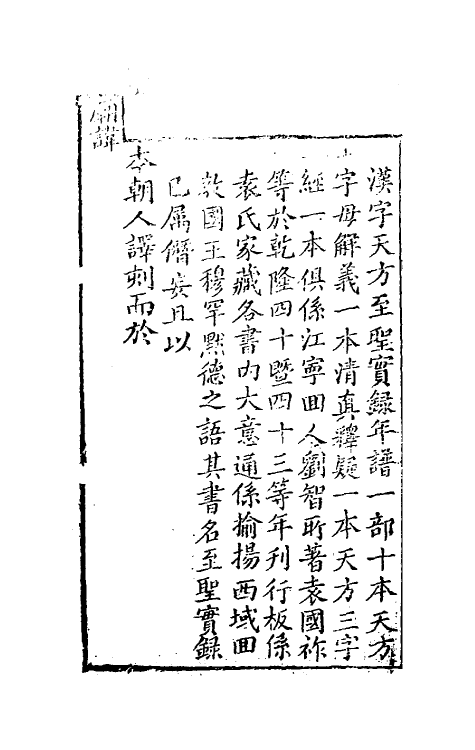 漢字天方至聖實録年譜一部十本天方
字母解義一本清真釋疑一本天方三字
經一本俱係江寧回人劉智所著袁國祚
等於乾隆四十曁四十三等年刊行板係
袁氏家藏各書内大意通係揄揚西域囬
教國王穆罕黙德之語其書名至聖實録
已屬僭妄且以
本朝人譯刻而於
廟諱